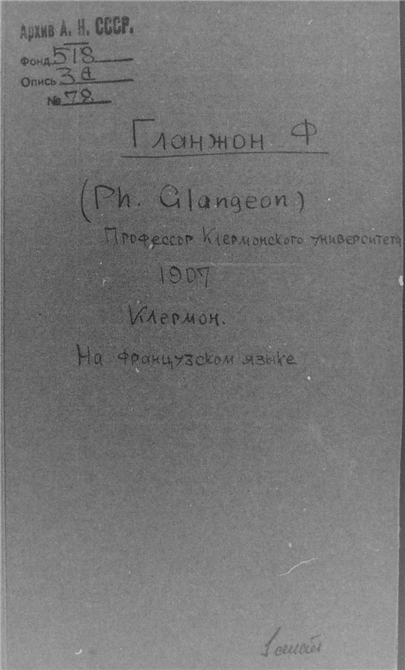 Архив А. Н. СССР.
Фонд 518
Опись 3а
№ 78
Гланжон Ф
(Ph. Glangeon)
Профессор Клермонского университета
1907
Клермон.
На французском языке